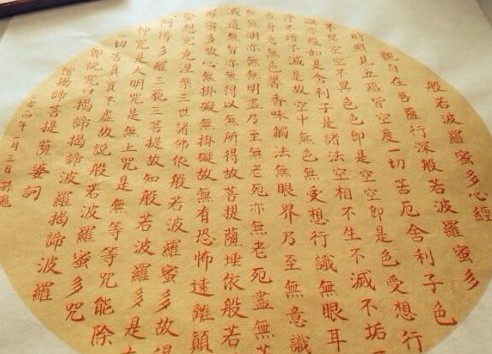 般若波羅蜜多心經
觀自在菩薩行深般若波羅蜜多
時照見五蘊皆空度一切苦厄舍利子色
不異空空不異色色即是空空即是色受想行
識亦復如是舍利子是諸法空相不生不滅不垢
不增不減是故空中無色無受想行識無眼耳
舌身意無色聲香味觸法無眼界乃至無意識
無明亦無無明盡乃至無老死亦無老死盡無苦
滅道無智亦無得以無所得故菩提薩埵依般若
蜜多故心無掛礙無掛礙故無有恐怖遠離顛
夢想究竟涅槃三世諸佛依般若波羅蜜多故得
阿耨多羅三藐三菩提故知般若波羅蜜多是大
咒是大明咒是無上咒是無等等咒能除
一切苦真實不虛故說般若波羅蜜多咒
即說咒曰揭諦揭諦波羅揭諦波羅
僧揭諦菩提薩婆訶
年二月三日